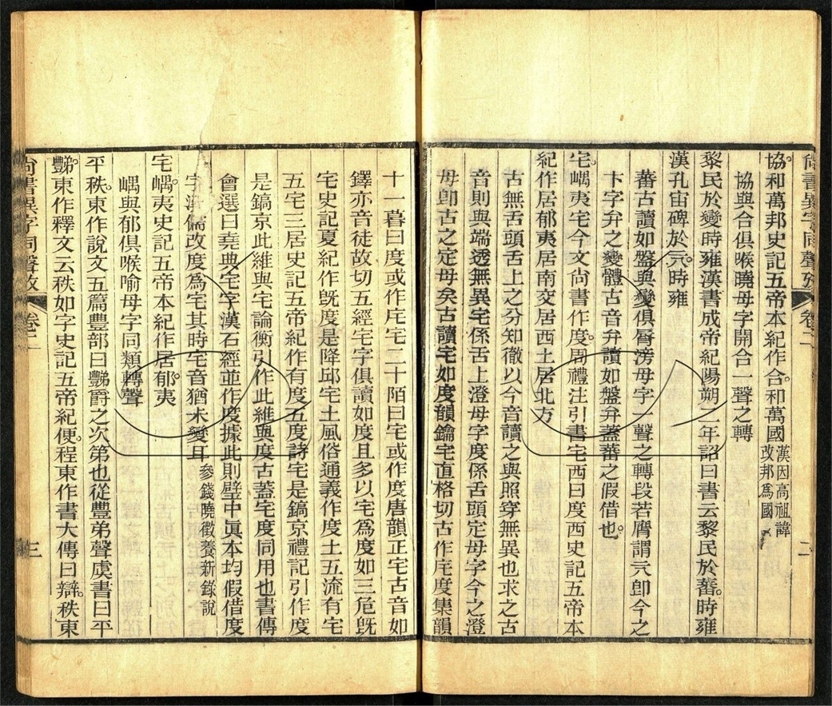 尙書異字同聲攷 卷一 二
協和萬邦史記五帝本紀作合和萬國漢因高祖諱改邦爲國
協與合俱喉曉母字開合一聲之轉
黎民於變時雍漢書成帝紀陽朔二年詔曰書云黎民於蕃時雍
漢孔宙碑於亓時雍
蕃古讀如盤與變俱脣滂母字一聲之轉段若膺謂亓卽今之
卞字弁之變體古音弁讀如盤弁蓋蕃之假借也
宅嵎夷宅今文尙書作度周禮注引書宅西曰度西史記五帝本
紀作居郁夷居南交居西土居北方
古無舌頭舌上之分知徹以今音讀之與照穿無異也求之古
音則與端透無異宅係舌上澄母字度係舌頭定母字今之澄
母卽古之定母矣古讀宅如度韻鑰宅直格切古作庑度集韻
十一暮曰度或作庑宅二十陌曰宅或作度唐韻正宅古音如
鐸亦音徒故切五經宅字俱讀如度且多以宅爲度如三危旣
宅史記夏紀作旣度是降邱宅土風俗通義作度土五流有宅
五宅三居史記五帝紀作有度五度詩宅是鎬京禮記引作度
是鎬京此維與宅論衡引作此維與度古蓋宅度同用也書傳
會選曰堯典宅字漢石經並作度據此則壁中眞本均假借度
字漢儒改度爲宅其時宅音猶未變耳參錢曉徵養新錄說
宅嵎夷史記五帝本紀作居郁夷
嵎與郁俱喉喻母字同類轉聲
平秩東作說文五篇豐部曰豑爵之次第也從豐弟聲虞書曰平
豑東作釋文云秩如字史記五帝紀便程東作書大傳曰辯秩東
尙書異字同聲攷 卷一 三